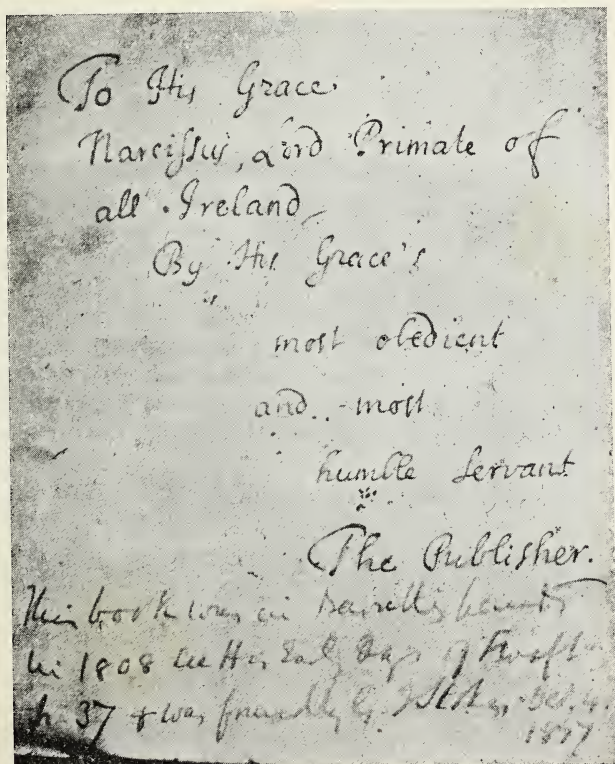 To His Grace
Narcissus, Lord Primate of
all Ireland
By His Grace's
most obedient
and most
humble servant
The Publisher.
This book was in Barrett's
in 1808 see his Early Days of Swift
p. 37 & was
1857